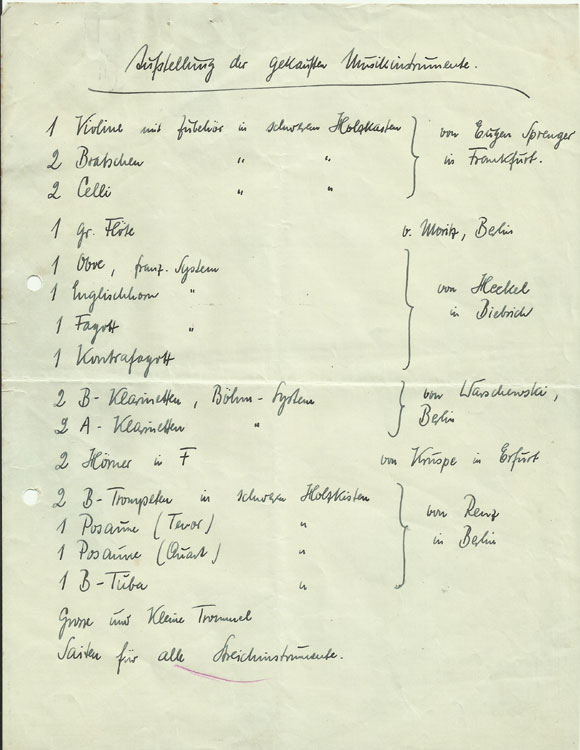 Aufstellung der gekauften Musikinstrumente.
1 Violine mit Zubehör in schwarzem Holzkasten
von Eugen Sprenger
2 Bratschen " "
in Frankfurt.
2 Celli " "
1 gr. Flöte v. Moritz, Berlin
1 Oboe, franz. System
1 Englischhorn "
von Heckel
in Biebrich
1 Fagott "
1 Kontrafagott
2 B-Klarinetten, Böhm-System
von Warschewski,
2 A-Klarinetten "
Berlin
2 Hörner in F von Kruspe in Erfurt
2 B-Trompeten in schwarzen Holzkisten
von Renz
1 Posaune (Tenor) "
in Berlin
1 Posaune (Quart) "
1 B-Tuba "
Grosse und Kleine Trommel
Saiten für alle Streichinstrumente.